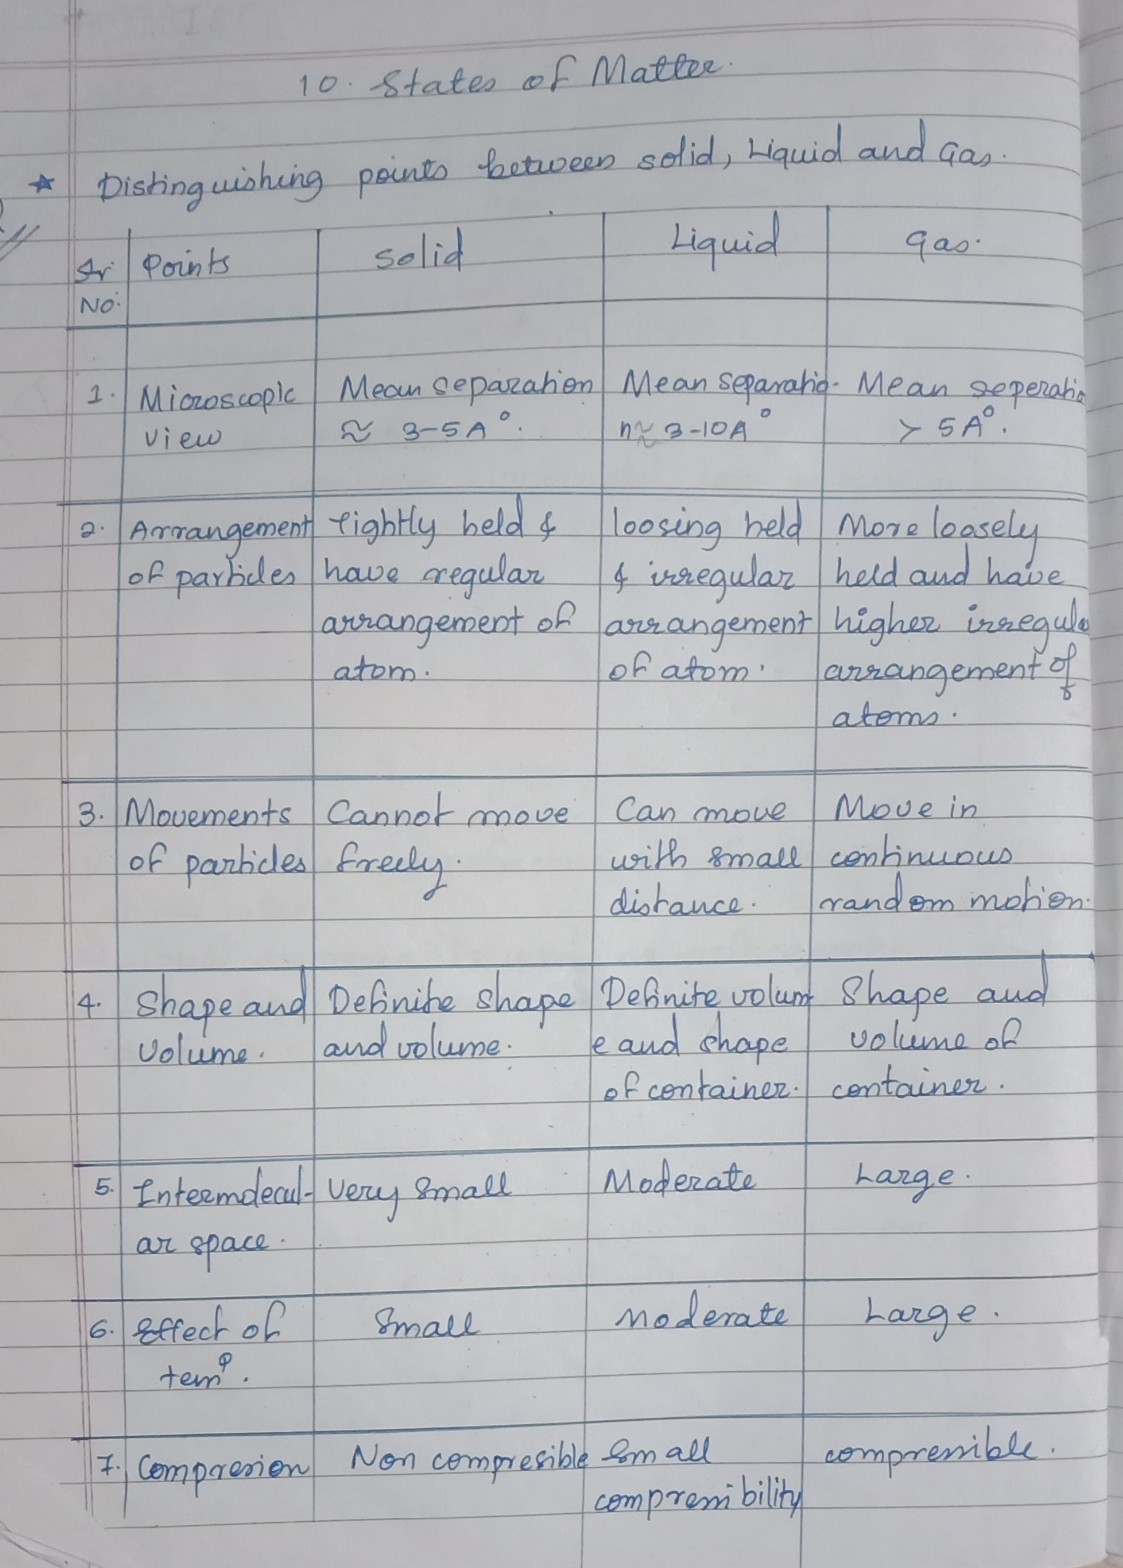 10. States of Matter.
★ Distinguishing points between solid, Liquid and Gas.
Sr. No: | Points | Solid | Liquid | gas.
1. | Microscopic | Mean separation | Mean separatio- | Mean seperatio
view | ≈ 3-5A°. | n ≈ 3-10A° | > 5A°.
2. | Arrangement | tightly held & | loosing held | More loasely
of particles | have regular | & irregular | held and have
arrangement of | arrangement | higher irregula
atom. | of atom. | arrangement of
atoms.
3. | Movements | Cannot move | Can move | Move in
of particles | freely. | with small | continuous
distance. | random motion.
4. | Shape and | Definite shape | Definite volum | Shape and
Volume. | and volume. | e and shape | volume of
of container. | container.
5. | Intermolecul- | Very small | Moderate | Large.
ar space.
6. | Effect of | Small | Moderate | Large.
temp.
7. | Compression | Non compresible | Small | compressible.
compressibility